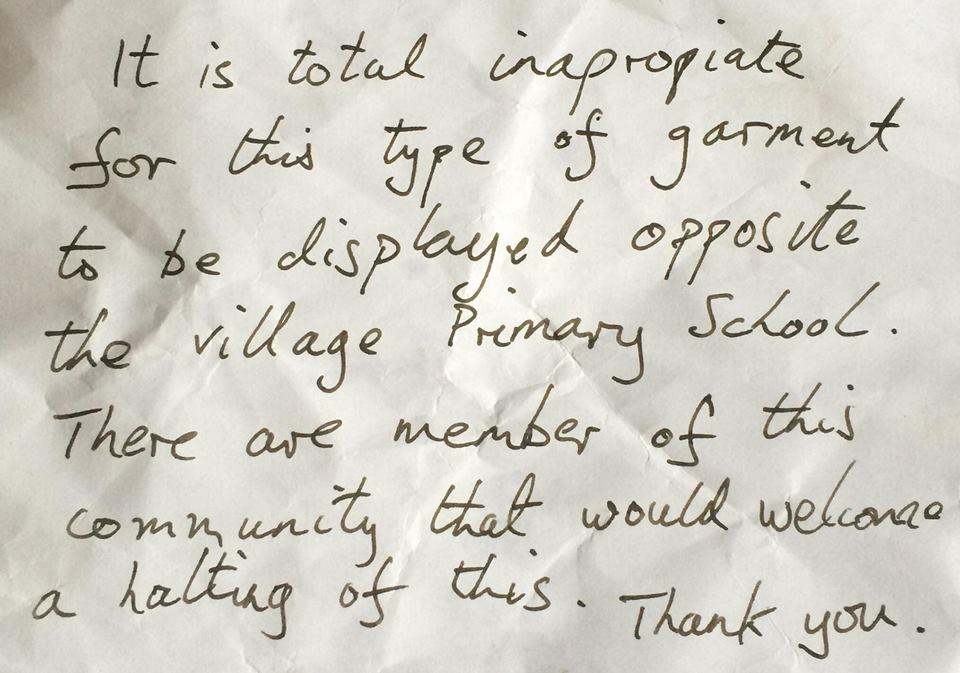 It is total inapropiate
for this type of garment
to be displayed opposite
the village Primary School.
There are member of this
community that would welcome
a halting of this. Thank you.